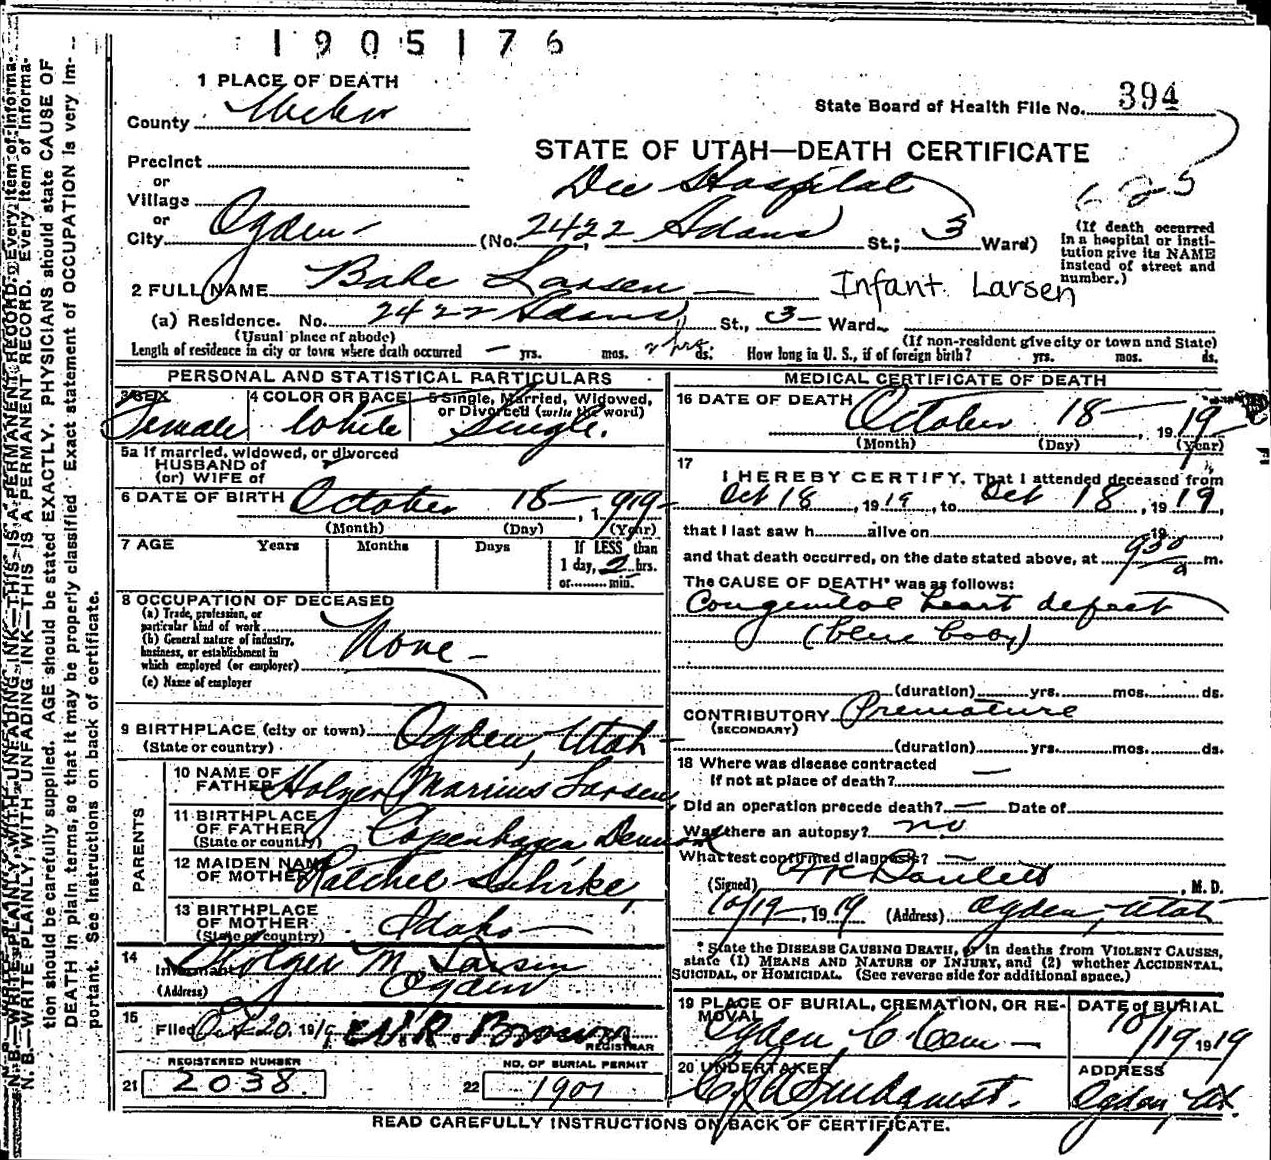 1905176
1 PLACE OF DEATH
State Board of Health File No. 394
County Weber
STATE OF UTAH—DEATH CERTIFICATE
Precinct
or
Village
or
City Ogden
Dee Hospital
625
(No. 2422 Adams St.; 3 Ward)
(If death occurred in a hospital or institution give its NAME instead of street and number.)
2 FULL NAME Babe Larsen Infant Larsen
(a) Residence. No. 2422 Adams St., 3 Ward.
(Usual place of abode)
(If non-resident give city or town and State)
Length of residence in city or town where death occurred — yrs. mos. 2 hrs. ds. How long in U. S., if of foreign birth? yrs. mos. ds.
PERSONAL AND STATISTICAL PARTICULARS
3 SEX Female
4 COLOR OR RACE White
5 Single, Married, Widowed, or Divorced (write the word) Single.
5a If married, widowed, or divorced
HUSBAND of
(or) WIFE of
6 DATE OF BIRTH October 18 1919
(Month) (Day) (Year)
7 AGE Years Months Days If LESS than 1 day, 2 hrs. or min.
8 OCCUPATION OF DECEASED
(a) Trade, profession, or particular kind of work
(b) General nature of industry, business, or establishment in which employed (or employer)
None
(c) Name of employer
9 BIRTHPLACE (city or town) Ogden, Utah
(State or country)
PARENTS
10 NAME OF FATHER Holger Marinus Larsen
11 BIRTHPLACE OF FATHER (State or country) Copenhagen Denmark
12 MAIDEN NAME OF MOTHER Ratchel
13 BIRTHPLACE OF MOTHER (State or country) Idaho
14 Informant Holger M. Larsen
(Address) Ogden
15 Filed Oct 20 1919 W R Brown
REGISTRAR
REGISTERED NUMBER
21 2038
NO. OF BURIAL PERMIT
22 1901
MEDICAL CERTIFICATE OF DEATH
16 DATE OF DEATH October 18 1919
(Month) (Day) (Year)
17 I HEREBY CERTIFY, That I attended deceased from
Oct 18, 1919, to Oct 18, 1919,
that I last saw h alive on 19
and that death occurred, on the date stated above, at 930 a m.
The CAUSE OF DEATH* was as follows:
Congenital heart defect
(blue baby)
(duration) yrs. mos. ds.
CONTRIBUTORY Premature
(SECONDARY)
(duration) yrs. mos. ds.
18 Where was disease contracted
If not at place of death? —
Did an operation precede death? — Date of
Was there an autopsy? no
What test confirmed diagnosis? —
(Signed) , M. D.
10/19, 1919 (Address) Ogden, Utah
* State the DISEASE CAUSING DEATH, or in deaths from VIOLENT CAUSES, state (1) MEANS AND NATURE OF INJURY, and (2) whether ACCIDENTAL, SUICIDAL, or HOMICIDAL. (See reverse side for additional space.)
19 PLACE OF BURIAL, CREMATION, OR REMOVAL Ogden C Cem
DATE of BURIAL 10/19 1919
20 UNDERTAKER
ADDRESS Ogden, Ut.
READ CAREFULLY INSTRUCTIONS ON BACK OF CERTIFICATE.
N. B.—WRITE PLAINLY, WITH UNFADING INK—THIS IS A PERMANENT RECORD. Every item of information should be carefully supplied. AGE should be stated EXACTLY. PHYSICIANS should state CAUSE OF DEATH in plain terms, so that it may be properly classified. Exact statement of OCCUPATION is very important. See instructions on back of certificate.